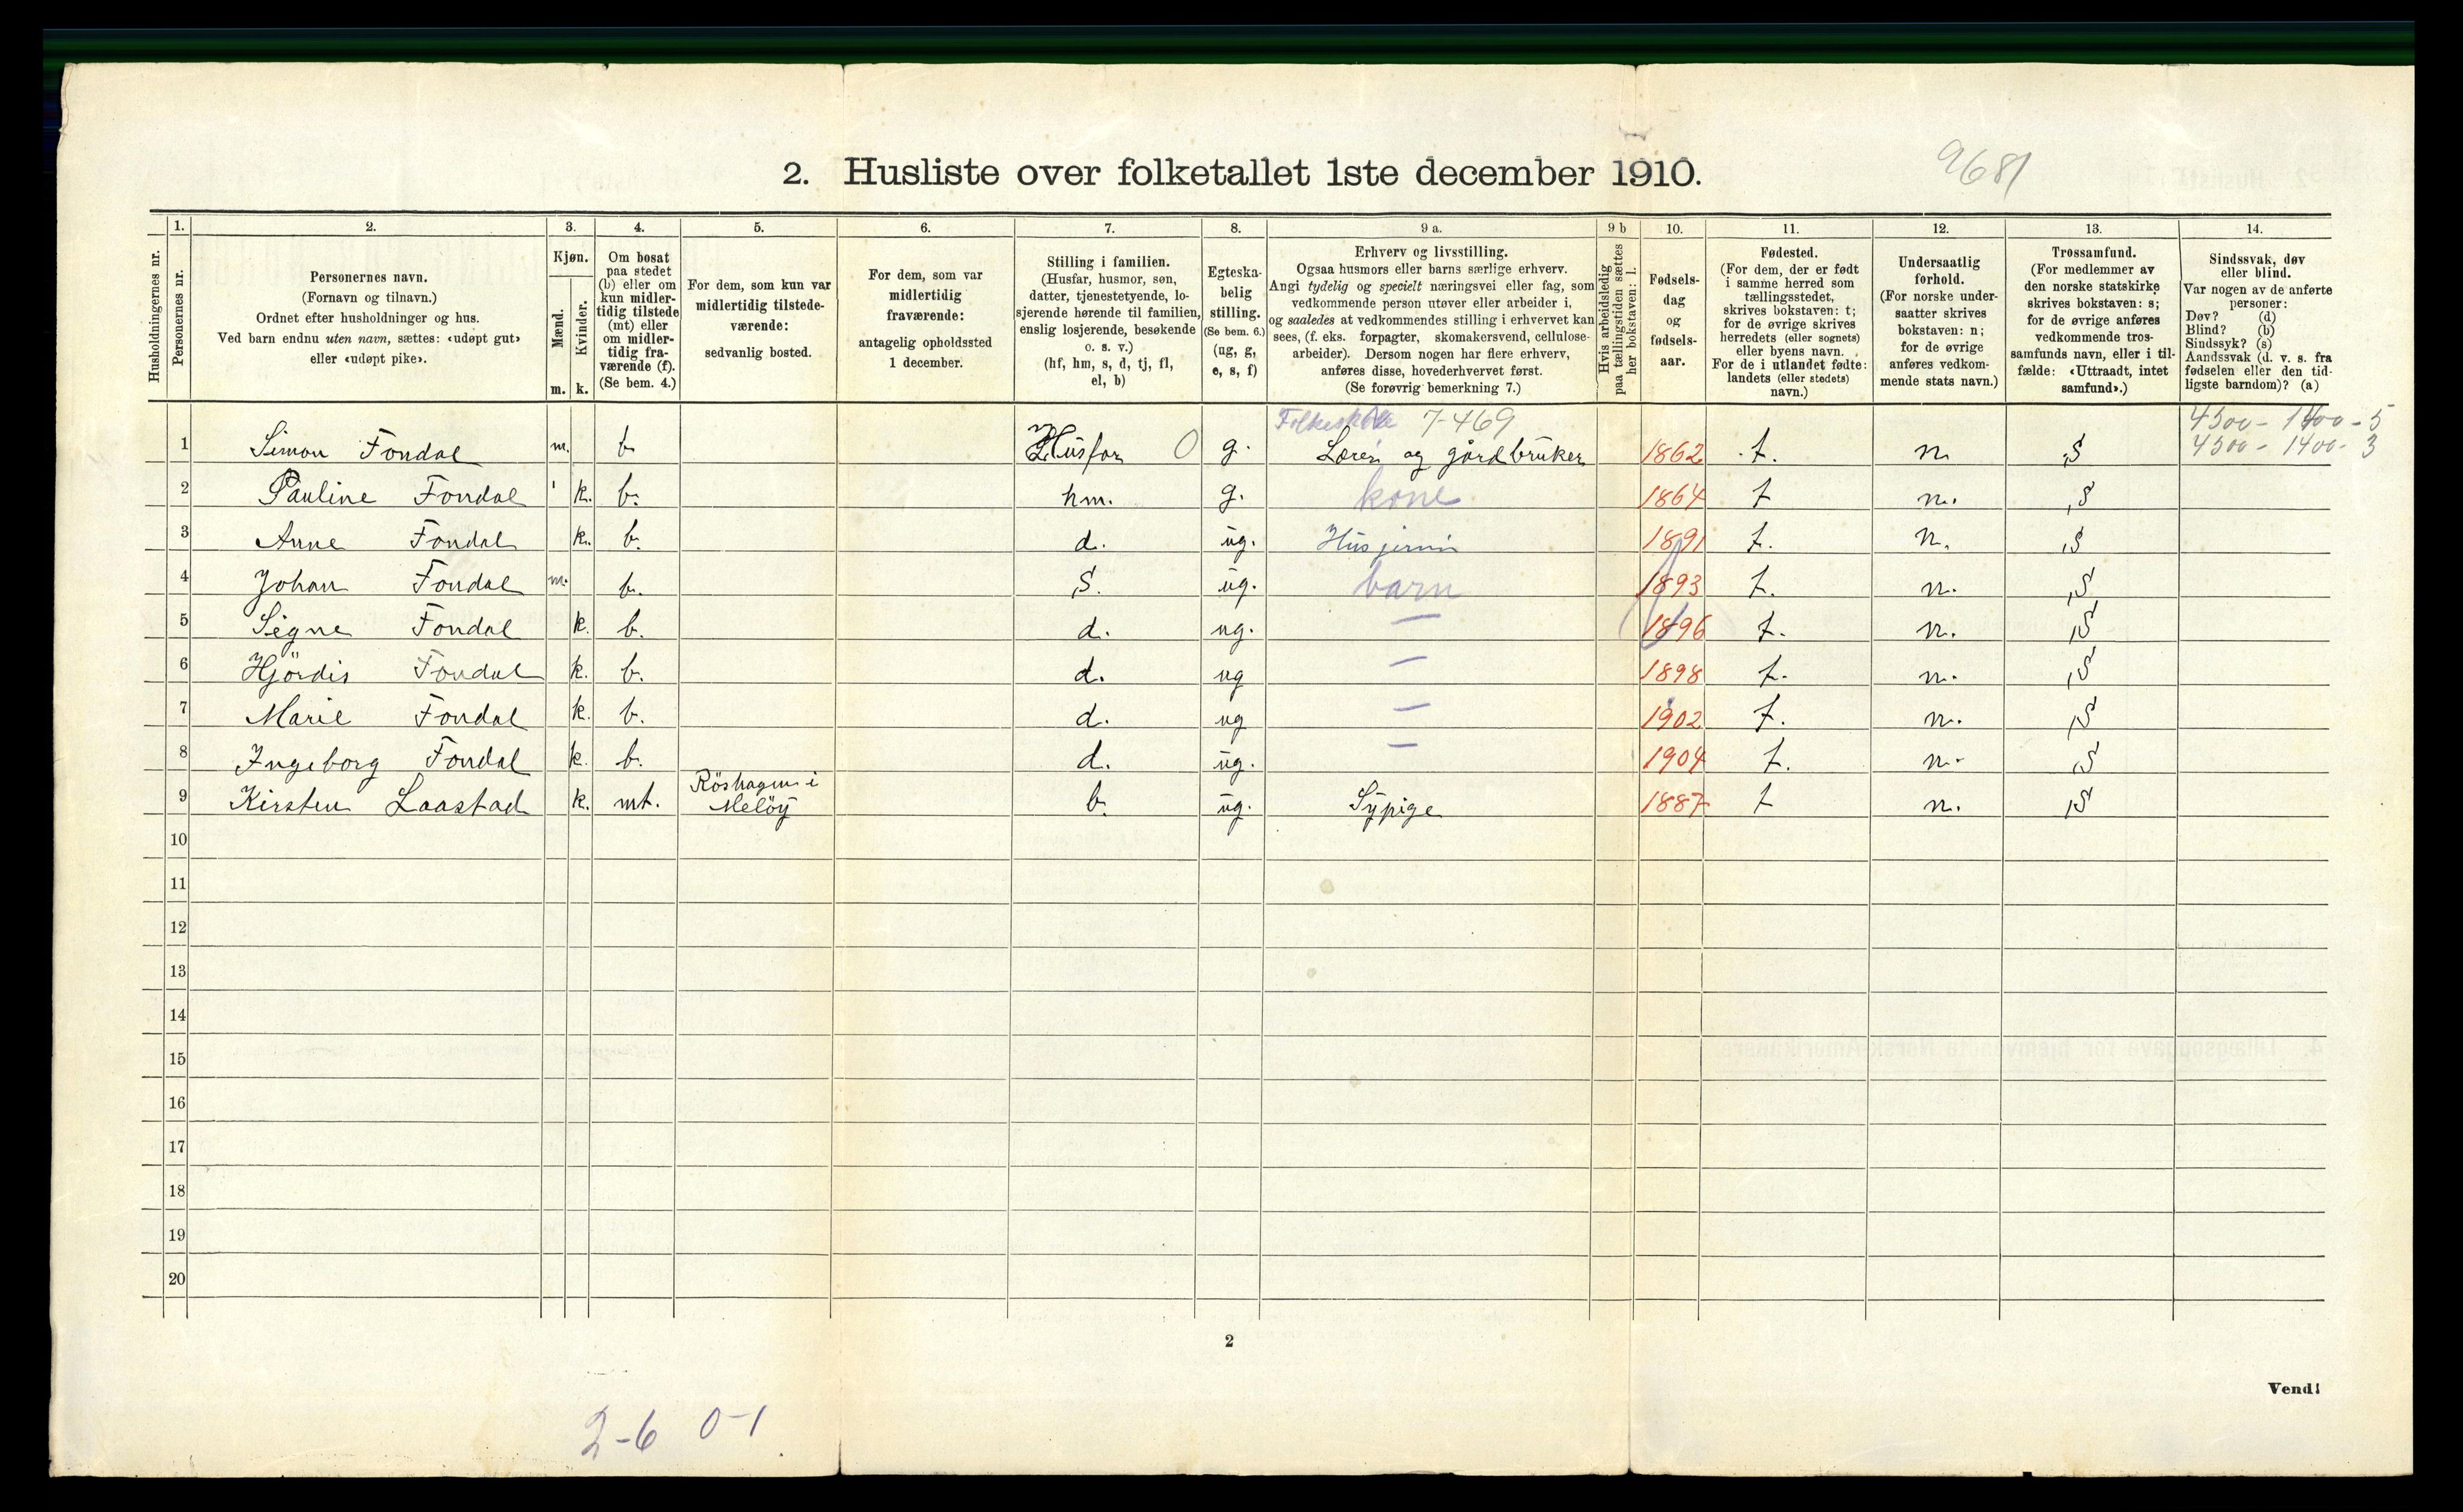 2. Husliste over folketallet 1ste december 1910.
9681
Husholdningernes nr.
1.
Personernes nr.
2.
Personernes navn.
(Fornavn og tilnavn.)
Ordnet efter husholdninger og hus.
Ved barn endnu uten navn, sættes: «udøpt gut»
eller «udøpt pike».
3.
Kjøn.
Mænd.
Kvinder.
m. k.
4.
Om bosat
paa stedet
(b) eller om
kun midler-
tidig tilstede
(mt) eller
om midler-
tidig fra-
værende (f).
(Se bem. 4.)
5.
For dem, som kun var
midlertidig tilstede-
værende:
sedvanlig bosted.
6.
For dem, som var
midlertidig
fraværende:
antagelig opholdssted
1 december.
7.
Stilling i familien.
(Husfar, husmor, søn,
datter, tjenestetyende, lo-
sjerende hørende til familien,
enslig losjerende, besøkende
o. s. v.)
(hf, hm, s, d, tj, fl,
el, b)
8.
Egteska-
belig
stilling.
(Se bem. 6.)
(ug, g,
e, s, f)
9 a.
Erhverv og livsstilling.
Ogsaa husmors eller barns særlige erhverv.
Angi tydelig og specielt næringsvei eller fag, som
vedkommende person utøver eller arbeider i,
og saaledes at vedkommendes stilling i erhvervet kan
sees, (f. eks. forpagter, skomakersvend, cellulose-
arbeider). Dersom nogen har flere erhverv,
anføres disse, hovederhvervet først.
(Se forøvrig bemerkning 7.)
9 b
Hvis arbeidsledig
paa tællingstiden sættes
her bokstaven: l.
10.
Fødsels-
dag
og
fødsels-
aar.
11.
Fødested.
(For dem, der er født
i samme herred som
tællingsstedet,
skrives bokstaven: t;
for de øvrige skrives
herredets (eller sognets)
eller byens navn.
For de i utlandet fødte:
landets (eller stedets)
navn.)
12.
Undersaatlig
forhold.
(For norske under-
saatter skrives
bokstaven: n;
for de øvrige
anføres vedkom-
mende stats navn.)
13.
Trossamfund.
(For medlemmer av
den norske statskirke
skrives bokstaven: s;
for de øvrige anføres
vedkommende tros-
samfunds navn, eller i til-
fælde: «Uttraadt, intet
samfund».)
14.
Sindssvak, døv
eller blind.
Var nogen av de anførte
personer:
Døv? (d)
Blind? (b)
Sindssyk? (s)
Aandssvak (d. v. s. fra
fødselen eller den tid-
ligste barndom)? (a)
Folkeskole 7-469 4500 - 1400 - 5
1 Simon Fondal m. b. Husfar 0 g. Lærer og gårdbruker 1862 t. n. S 4500 - 1400 - 3
2 Pauline Fondal k. b. hm. g. kone 1864 t n. S
3 Anne Fondal k. b. d. ug. Husgjerning 1891 t. n. S
4 Johan Fondal m. b. S. ug. barn 1893 t. n. S
5 Signe Fondal k. b. d. ug. — 1896 t. n. S
6 Hjördis Fondal k. b. d. ug — 1898 t. n. S
7 Marie Fondal k. b. d. ug — 1902 t. n. S
8 Ingeborg Fondal k. b. d. ug. — 1904 t. n. S
9 Kirsten Laastad k. mt. Röshagen i Melöy b. ug. Sypige 1887 t n. S
10
11
12
13
14
15
16
17
18
19
20
2
Vend!
2-6 0-1